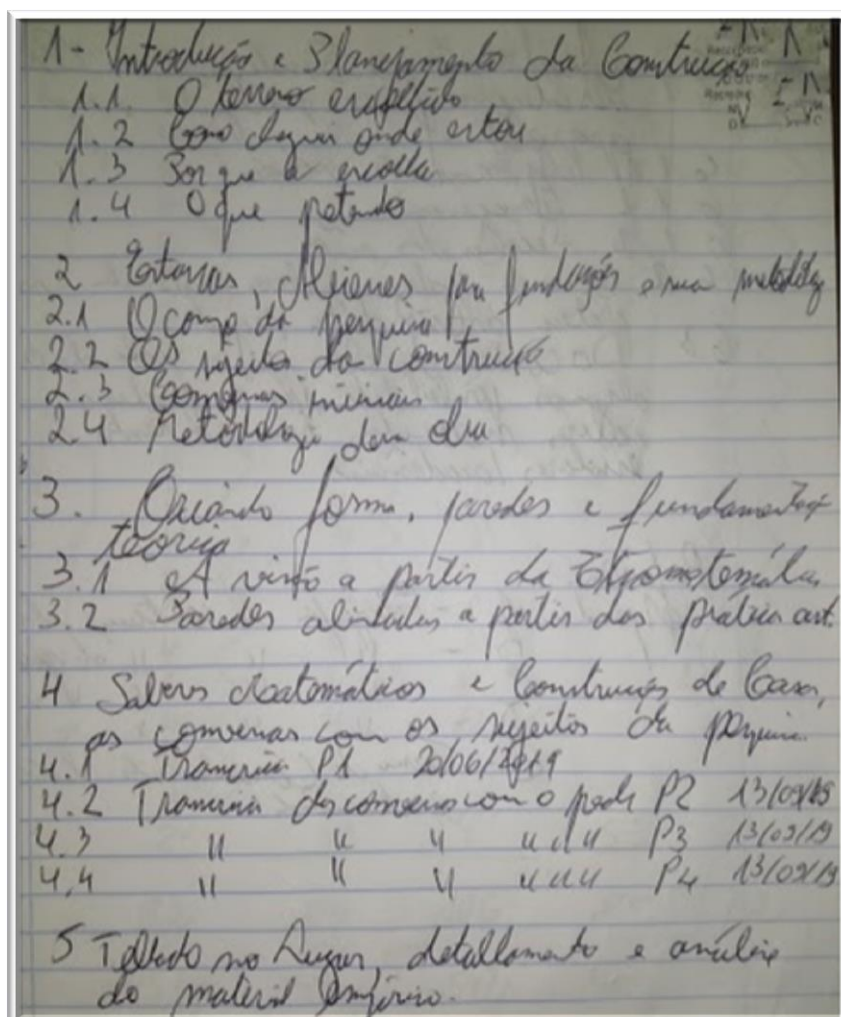 1- Introdução e Planejamento da Construção
1.1. O terreno escolhido
1.2 Como cheguei onde estou
1.3 Por que a escolha
1.4 O que pretendo
2 Estacas, Alicerces para fundações e sua metodolog
2.1 O campo da pesquisa
2.2 Os sujeitos da construção
2.3 Conversas iniciais
2.4 Metodologia da obra
3. Quando forma, paredes e fundamentação
teórica
3.1 A visão a partir da Etnomatemática
3.2 Paredes alinhadas a partir das prática art.
4 Saberes Matemáticos e Construção de Casas,
as conversas com os sujeitos da pesquisa.
4.1 Transcrição P1 20/06/2019
4.2 Transcrição das conversas com o pede P2 13/09/19
4.3 " " " " " " P3 13/09/19
4.4 " " " " " " P4 13/09/19
5 Telhado no lugar, detalhamento e análise
do material empírico.